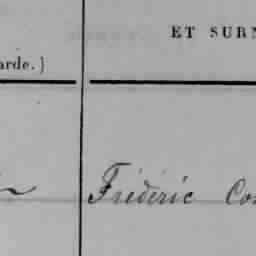 ET SURN
arde.)
Frédéric Con